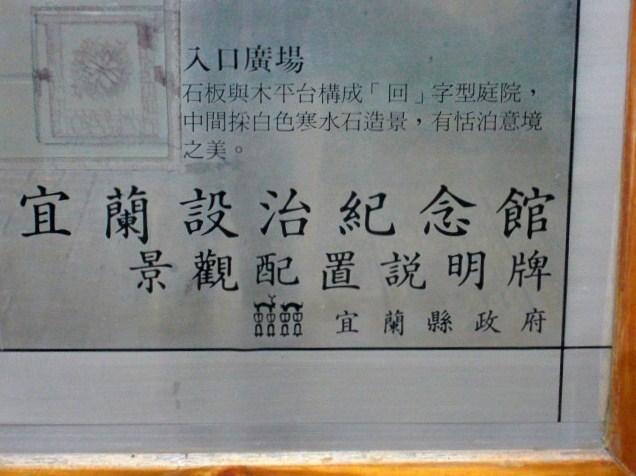 入口廣場
石板與木平台構成「回」字型庭院，
中間採白色寒水石造景，有恬泊意境
之美。
宜蘭設治紀念館
景觀配置說明牌
宜蘭縣政府